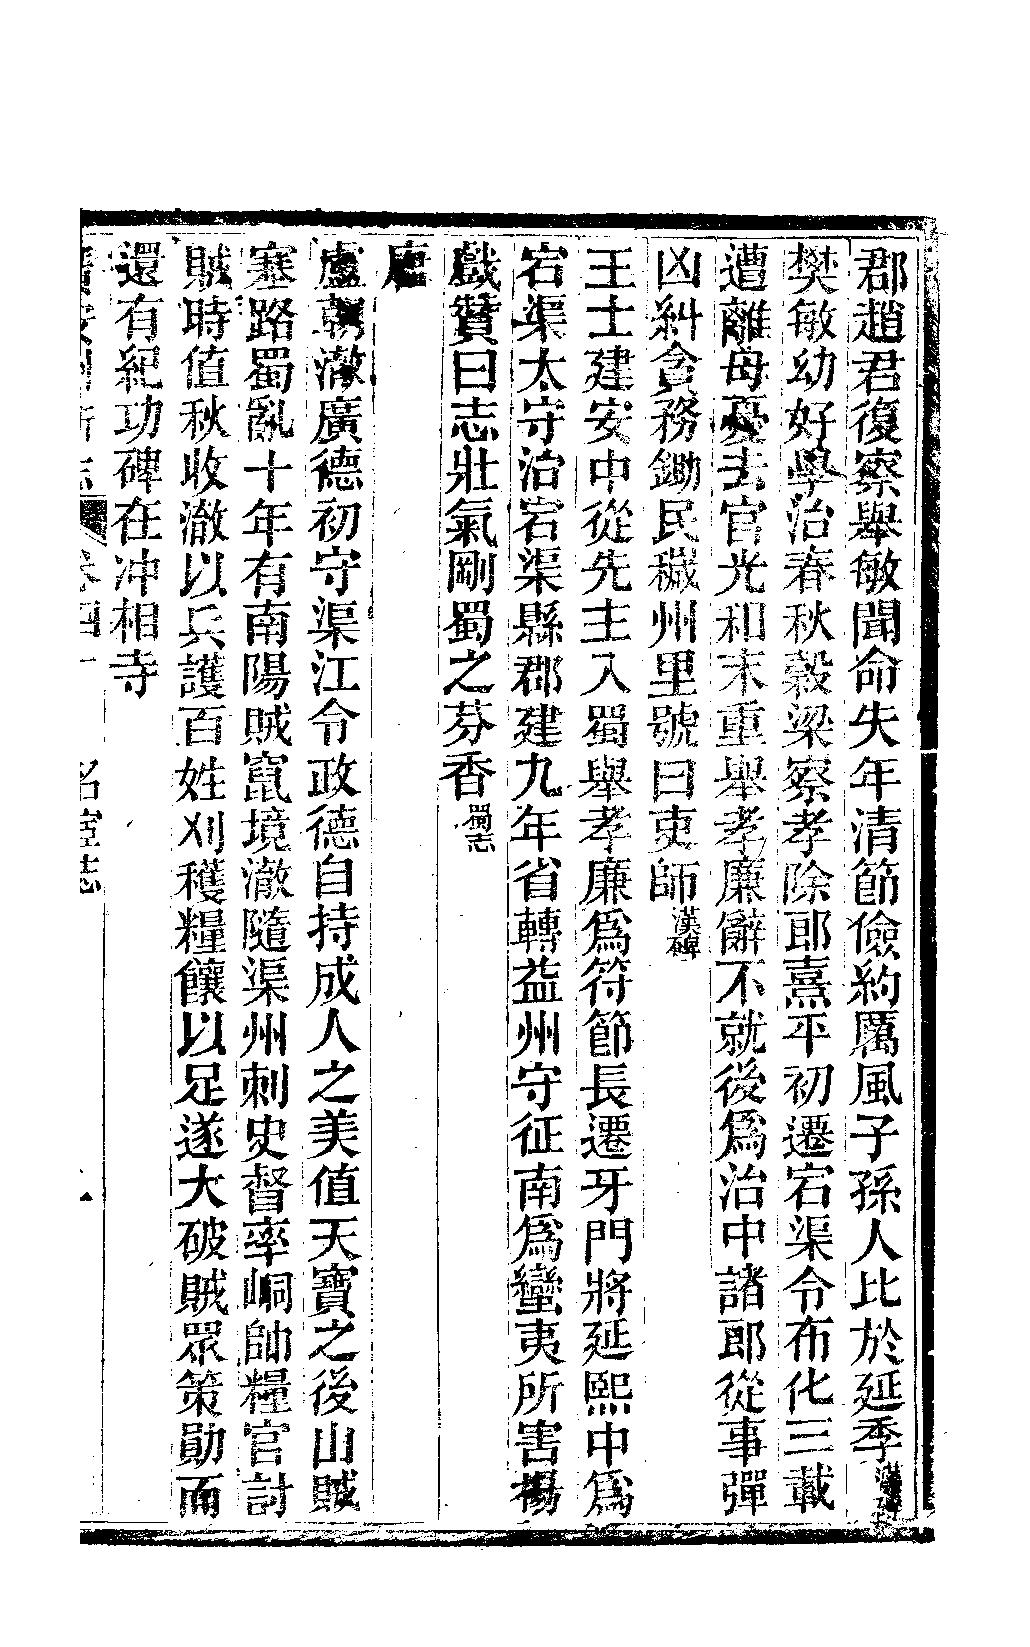 郡趙君復察舉敏聞命失年清節儉約厲風子孫人比於延季漢碑
樊敏幼好學治春秋穀梁察孝除郎熹平初遷宕渠令布化三載
遭離母憂去官光和末重舉孝廉辭不就後爲治中諸郎從事彈
凶糾貪務鋤民穢州里號曰吏師漢碑
王士建安中從先主入蜀舉孝廉爲符節長遷牙門將延熙中爲
宕渠太守治宕渠縣郡建九年省轉益州守征南爲蠻夷所害楊
戲贊曰志壯氣剛蜀之芬香蜀志
唐
盧朝澈廣德初守渠江令政德自持成人之美值天寶之後山賊
塞路蜀亂十年有南陽賊竄境澈隨渠州刺史督率峒帥糧官討
賊時值秋收澈以兵護百姓刈穫糧饟以足遂大破賊眾策勛而
還有紀功碑在冲相寺
廣安州新志 卷四十 名宦志